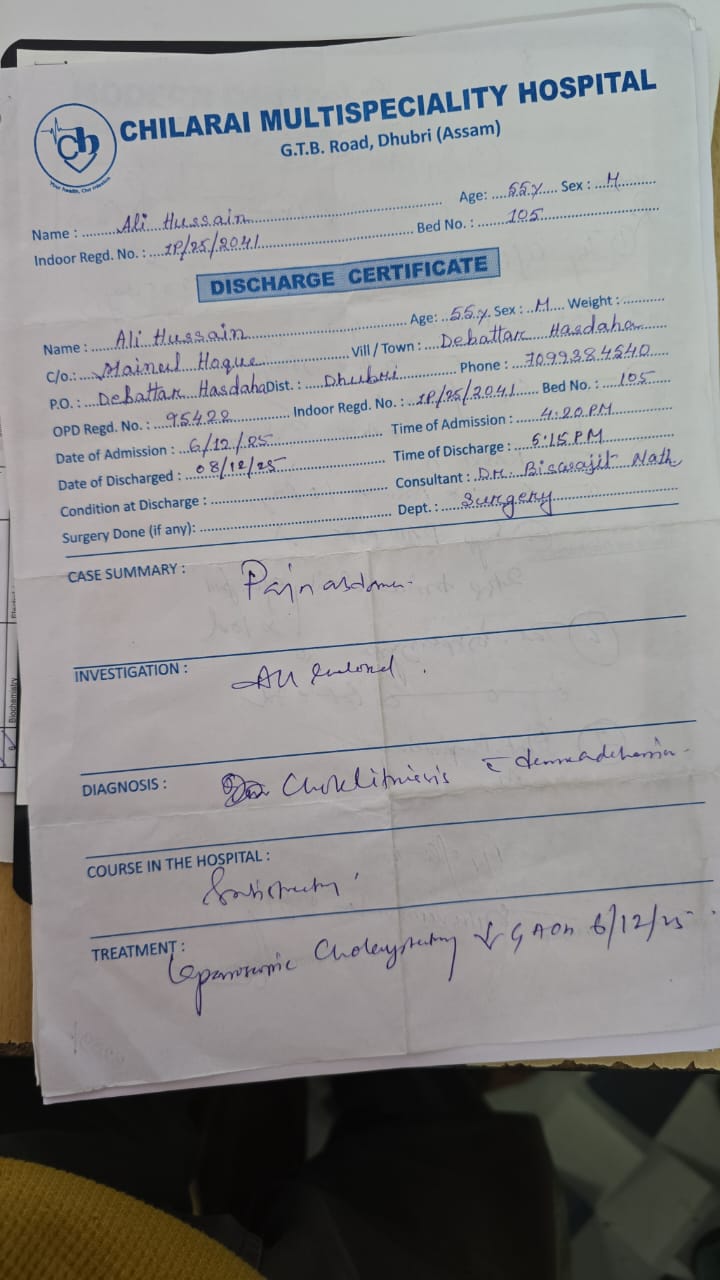 Ch
Your health, Our mission
CHILARAI MULTISPECIALITY HOSPITAL
G.T.B. Road, Dhubri (Assam)
Name : Ali Hussain Age: 55y Sex : M
Indoor Regd. No. : IP/25/2041 Bed No. : 105
DISCHARGE CERTIFICATE
Name : Ali Hussain Age: 55y Sex : M Weight :
C/o.: Mainul Hoque Vill / Town : Debattar Hasdaha
P.O. : Debattar Hasdaha Dist. : Dhubri Phone : 7099384540
OPD Regd. No. : 95422 Indoor Regd. No. : IP/25/2041 Bed No. : 105
Date of Admission : 6/12/25 Time of Admission : 4:20 PM
Date of Discharged : 08/12/25 Time of Discharge : 5:15 PM
Condition at Discharge : Consultant : Dr. Biswajit Nath
Surgery Done (if any): Dept. : Surgery
CASE SUMMARY : Pain abdomen
INVESTIGATION : All enclosed.
DIAGNOSIS :
COURSE IN THE HOSPITAL :
TREATMENT : 6/12/25
Biochemistry